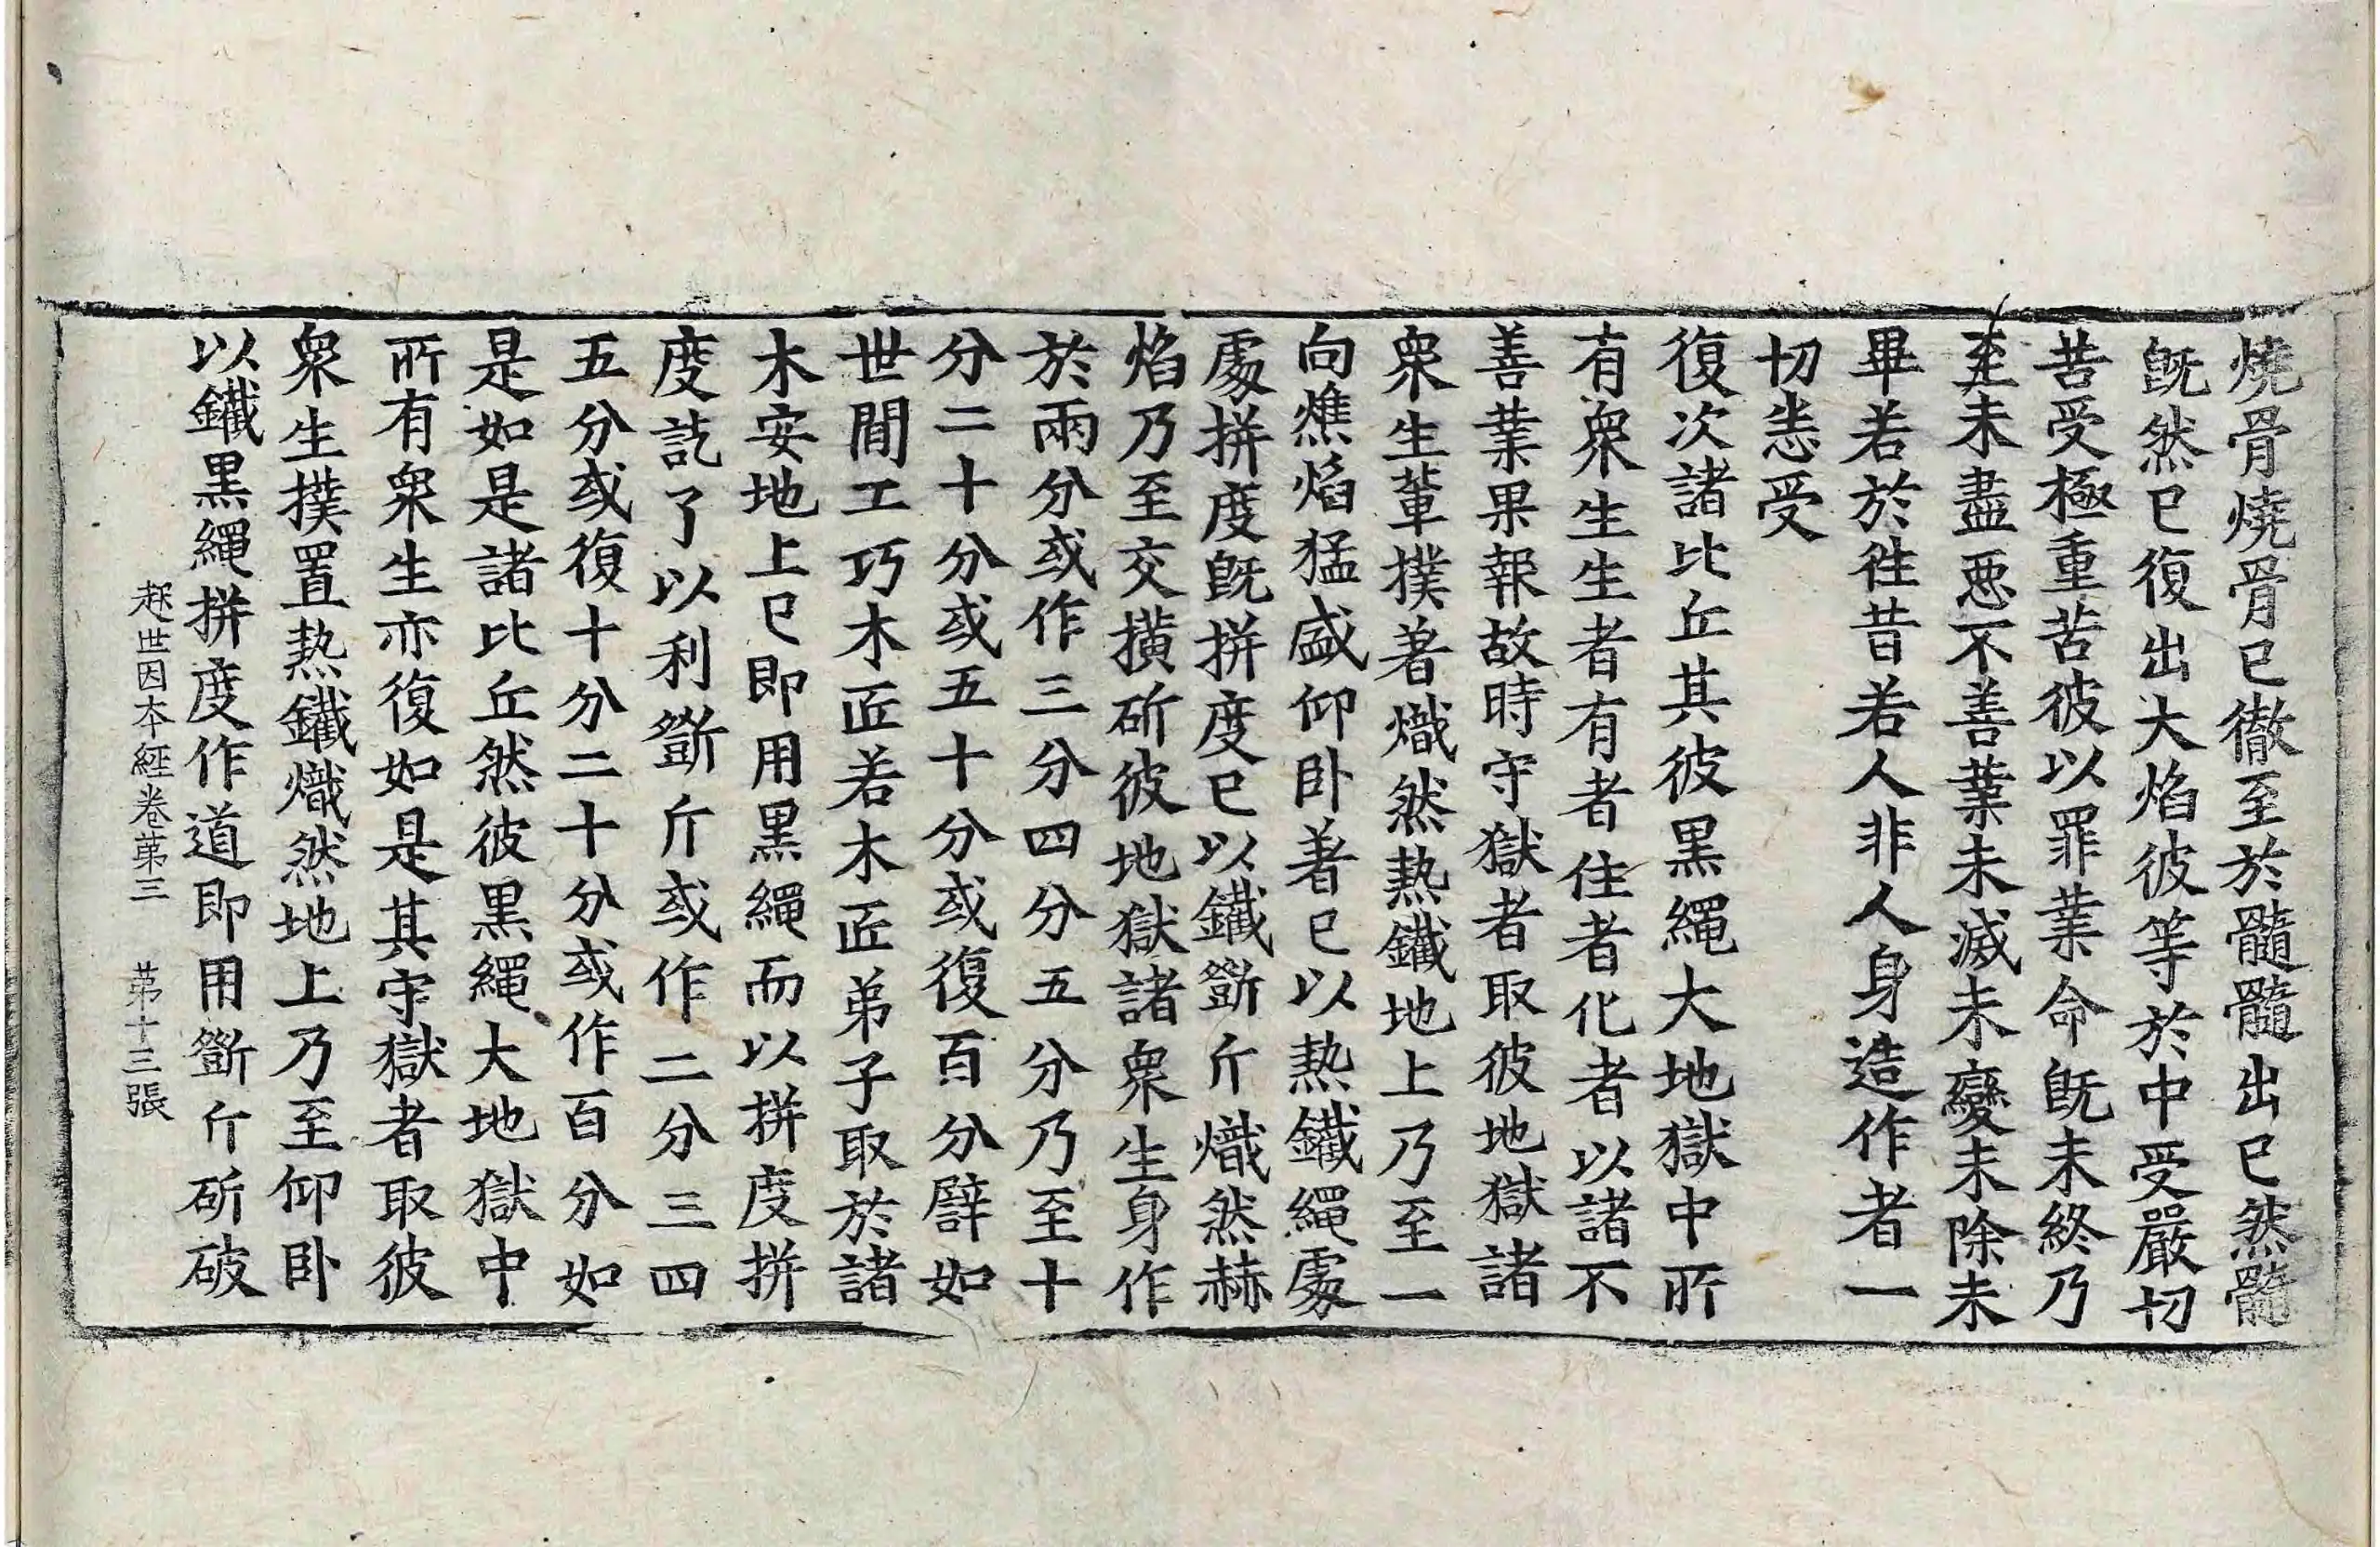 燒骨燒骨已徹至於髓髓出已然髓
旣然已復出大焰彼等於中受嚴切
苦受極重苦彼以罪業命旣未終乃
至未盡惡不善業未滅未變未除未
畢若於徃昔若人非人身造作者一
切恚受
復次諸比丘其彼黑繩大地獄中所
有衆生生者有者住者化者以諸不
善業果報故時守獄者取彼地獄諸
衆生軰撲著熾然熱鐵地上乃至一
向燋焰猛盛仰卧著已以熱鐵繩處
處拼度旣拼度已以鐵斵斤熾然赫
焰乃至交撗斫彼地獄諸衆生身作
於兩分或作三分四分五分乃至十
分二十分或五十分或復百分譬如
世間工巧木匠若木匠弟子取於諸
木安地上已即用黑繩而以拼度拼
度訖了以利斵斤或作二分三四
五分或復十分二十分或作百分如
是如是諸比丘然彼黑繩大地獄中
所有衆生亦復如是其守獄者取彼
衆生撲置熱鐵熾然地上乃至仰卧
以鐵黑繩拼度作道即用斵斤斫破
起世因本經卷第三 第十三張